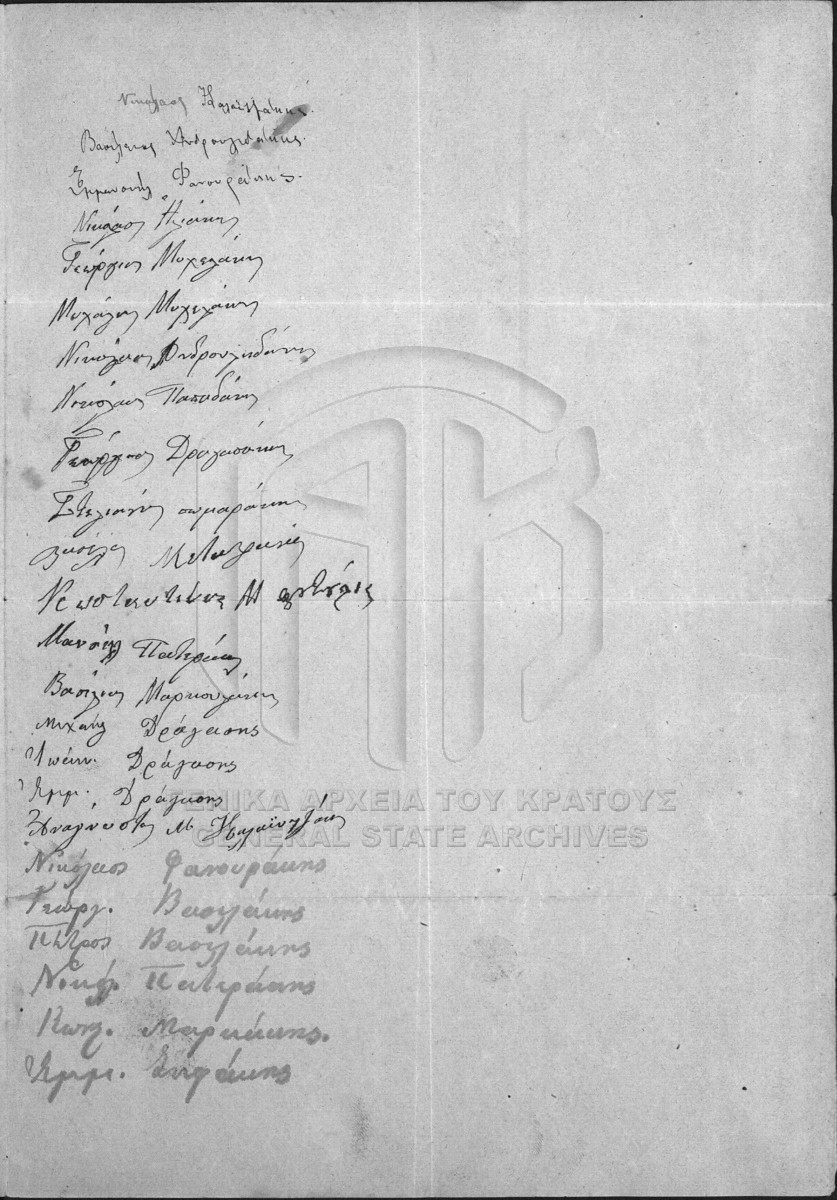 Νικόλαος
Βασίλειος Ανδρουλιδάκης.
Εμμανουήλ Φανουράκης.
Νικόλαος Ηλιάκης
Γεώργιος Μυχελάκης
Μυχάλης Μυχελάκης
Νικόλαος Ανδρουλιδάκης
Νικόλαος Παπαδάκης
Γεώργιος Δραγασάκης
Στελιανός
Μανόλης Πατεράκης
Βασίλιος Μαρκουλάκης
Μιχαήλ Δράγασης
Ιωάνν. Δράγασης
Εμμ. Δράγασης
Αναγνώστης Μ
Νικόλαος Φανουράκης
Γεώργ. Βασιλάκης
Πέτρος Βασιλάκης
Νικόλ. Πατεράκης
Κων. Μαρκάκης.
Εμμ. Σηφάκης
ΓΕΝΙΚΑ ΑΡΧΕΙΑ ΤΟΥ ΚΡΑΤΟΥΣ
GENERAL STATE ARCHIVES